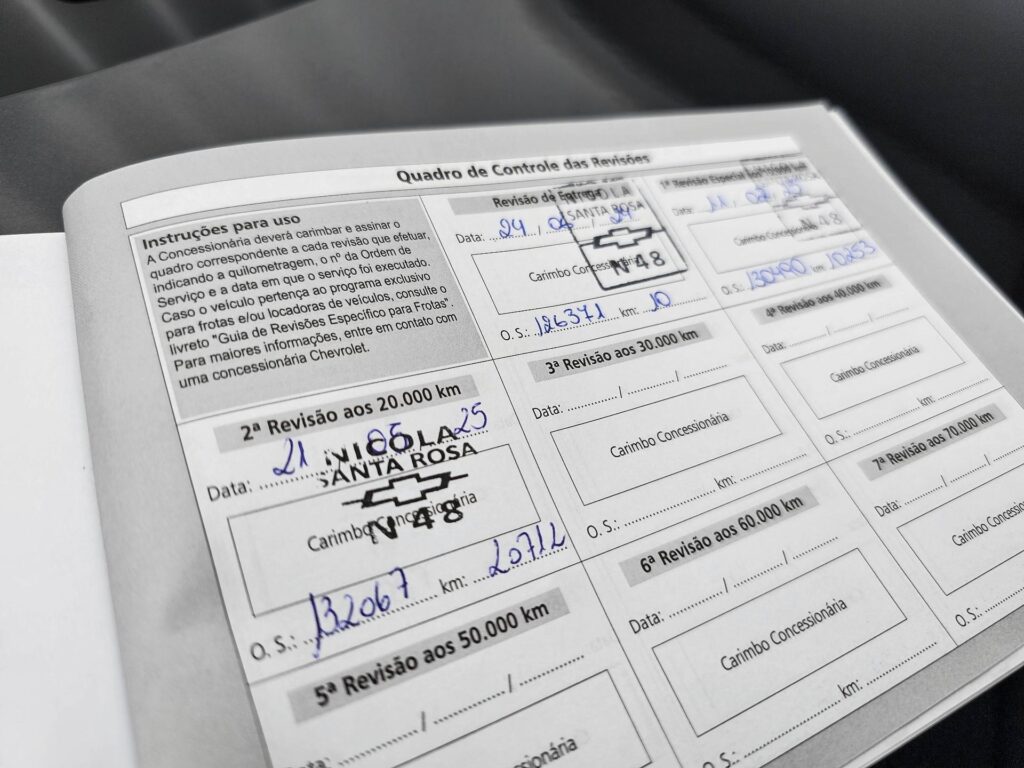 Quadro de Controle das Revisões
Instruções para uso
A Concessionária deverá carimbar e assinar o
quadro correspondente a cada revisão que efetuar,
indicando a quilometragem, o nº da Ordem de
Serviço e a data em que o serviço foi executado.
Caso o veículo pertença ao programa exclusivo
para frotas e/ou locadoras de veículos, consulte o
livreto "Guia de Revisões Específico para Frotas".
Para maiores informações, entre em contato com
uma concessionária Chevrolet.
Revisão de Entrega
SANTA ROSA
Data: 24 / 05 / 24
Carimbo Concessionária
N 48
O. S.: 126371 km: 10
1ª Revisão Especial
Data: 11 02 25
N 48
O. S.: 130490 km 10253
2ª Revisão aos 20.000 km
Data: 21 05 25
NICOLA
SANTA ROSA
Carimbo Concessionária
N 48
O. S.: 132067 km: 20712
3ª Revisão aos 30.000 km
Data: / /
Carimbo Concessionária
O. S.: km:
4ª Revisão aos 40.000 km
Data: / /
Carimbo Concessionária
O. S.: km:
5ª Revisão aos 50.000 km
/ /
Carimbo Concessionária
6ª Revisão aos 60.000 km
Data: / /
Carimbo Concessionária
O. S.: km:
7ª Revisão aos 70.000 km
Data: /
Carimbo Conces
O. S.: